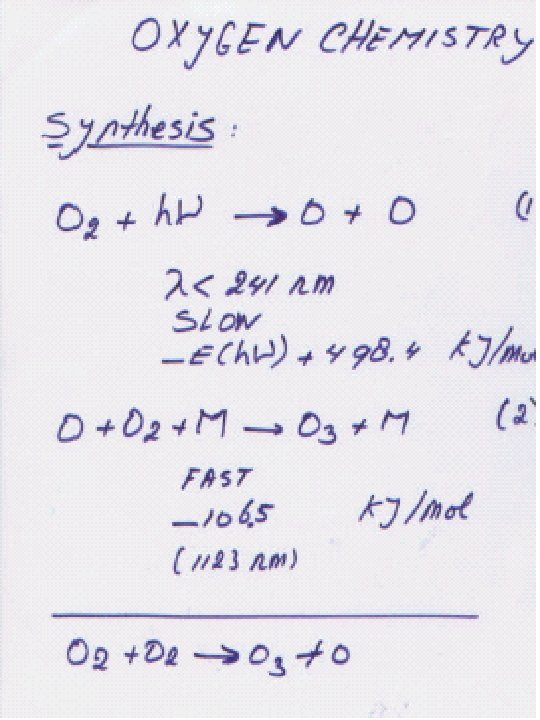 OXYGEN CHEMISTRY
Synthesis:
O₂ + hν → O + O (1
λ < 241 nm
SLOW
-E(hν) + 498.4 kJ/mo
O + O₂ + M → O₃ + M (2)
FAST
-106.5 kJ/mol
(1123 nm)
O₂ + O₂ → O₃ + O